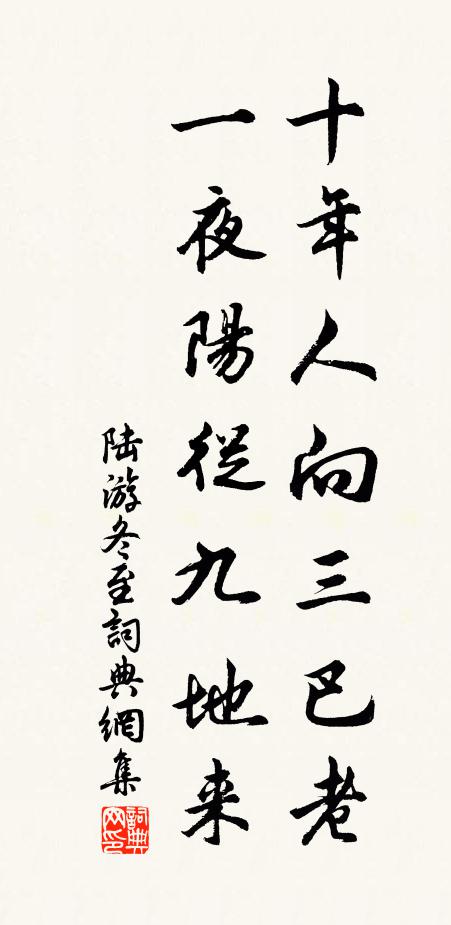 十年人向三巴老
一夜陽從九地来
陆游冬至詞典網集
詞典网印